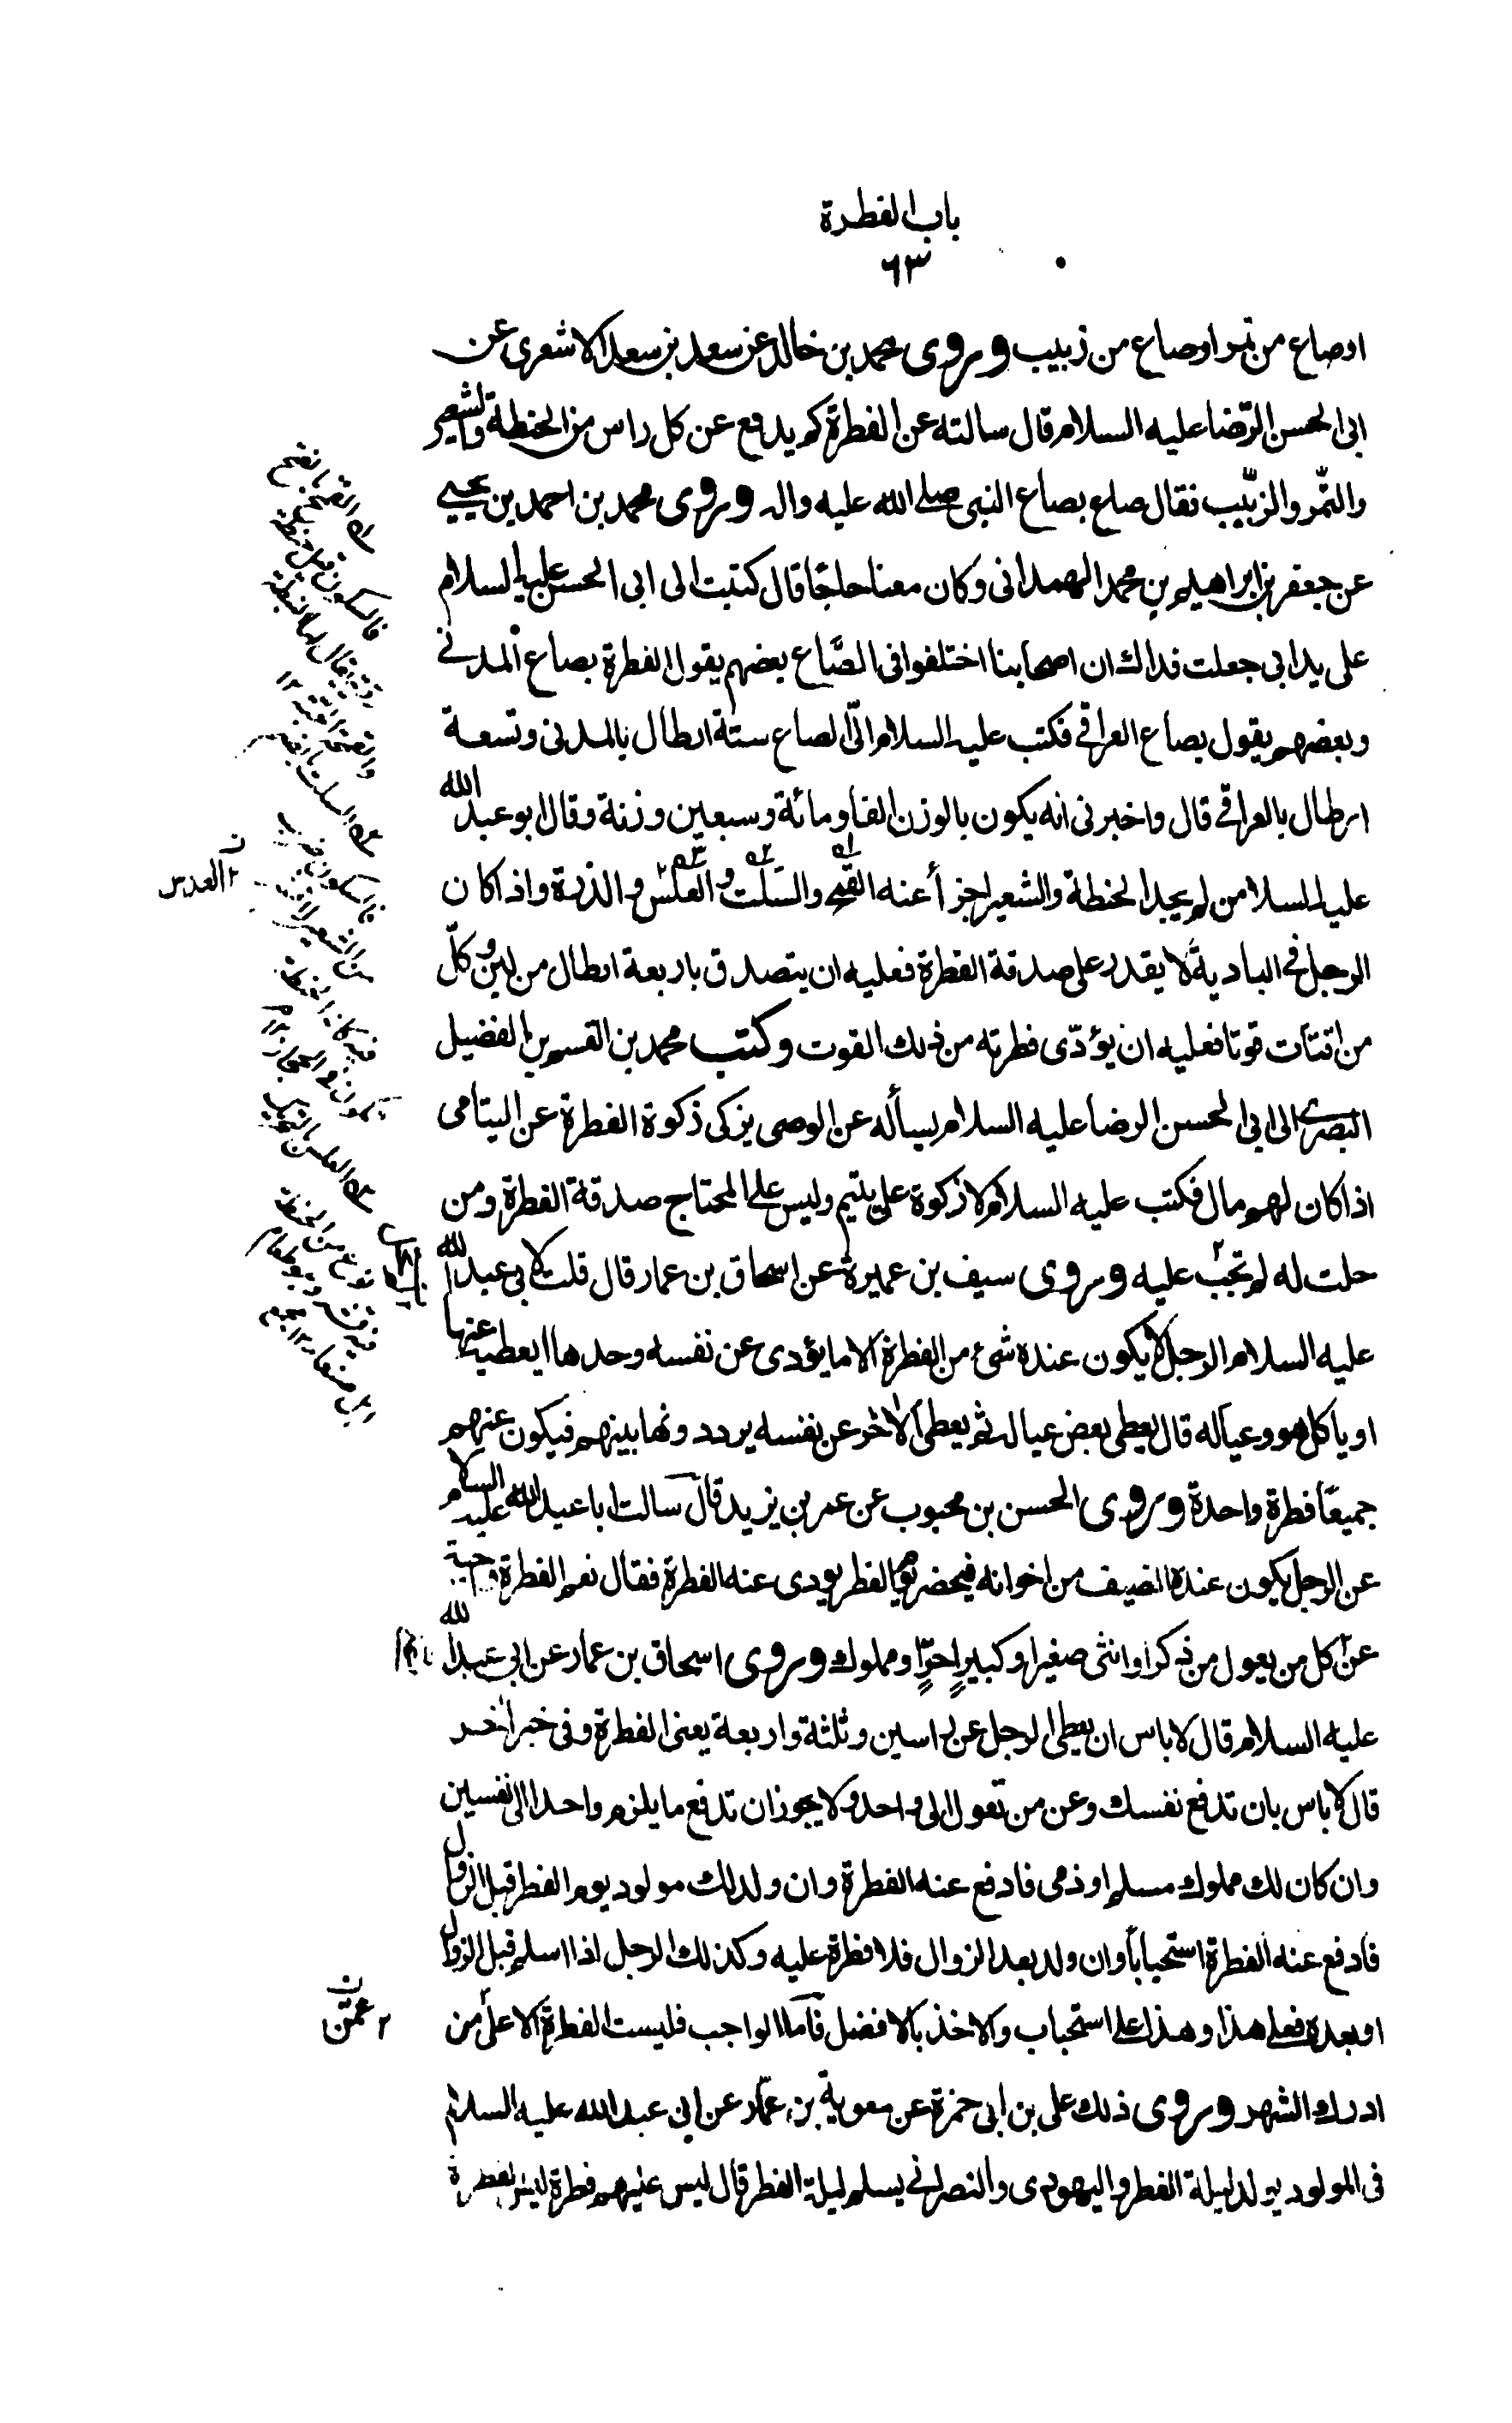 باب الفطرة
٦٣
اوصاع من تمر اوصاع من زبيب وروى محمد بن خالد عن سعد بن سعد الاشعرى عن
ابى الحسن الرّضا عليه السلام قال سالته عن الفطرة كم يدفع عن كل راس من الحنطة والشعير
والتّمر والزّبيب فقال صاع بصاع النبى صلے الله عليه واله وروى محمد بن احمد بن يحيے
عن جعفر بن ابراهيم بن محمد الهمدانى وكان معنا حاجّا قال كتبت الى ابى الحسن عليه السلام
على يد ابى جعلت فداك ان اصحابنا اختلفوا فى الصّاع بعضهم يقول الفطرة بصاع المدنے
وبعضهم يقول بصاع العراقے فكتب عليه السلام الىّ الصاع ستّة ارطال بالمدنى وتسعة
ارطال بالعراقے قال واخبرنى انه يكون بالوزن الفا ومائة وسبعين وزنة وقال ابو عبد الله
عليه السلام من لم يجد الحنطة والشعير اجزأ عنه القمح والسلت والعلس والذرة واذا كان
الرجل فے البادية لا يقدر على صدقة الفطرة فعليه ان يتصدق باربعة ارطال من لبن وكلّ
من اقتات قوتا فعليه ان يؤدّى فطرته من ذلك القوت وكتب محمد بن القسم بن الفضيل
البصرے الى ابى الحسن الرضا عليه السلام يسأله عن الوصى يزكى زكوة الفطرة عن اليتامى
اذا كان لهم مال فكتب عليه السلام لا زكوة على يتيم وليس على المحتاج صدقة الفطرة ومن
حلت له لم تجب عليه وروى سيف بن عميرة عن اسحاق بن عمار قال قلت لابى عبد الله
عليه السلام الرجل لا يكون عنده شئ من الفطرة الا ما يؤدى عن نفسه وحدها ايعطيه عنها
او ياكل هو وعياله قال يعطى بعض عياله ثم يعطى الاخر عن نفسه يرددونها بينهم فيكون عنهم
جميعًا فطرة واحدة وروى الحسن بن محبوب عن عمر بن يزيد قال سالت ابا عبد الله عليه السلام
عن الرجل يكون عنده الضيف من اخوانه فيحضر يوم الفطر يودى عنه الفطرة فقال نعم الفطرة واجبة
عن كل من يعول من ذكر او انثى صغير او كبير حرّ او مملوك وروى اسحاق بن عمار عن ابى عبد الله
عليه السلام قال لا باس ان يعطى الرجل عن راسين وثلثة واربعة يعنى الفطرة وفى خبر اٰخر
قال لا باس بان تدفع نفسك وعن من تعول الى واحد ولا يجوز ان تدفع ما يلزم واحدا الى نفسين
وان كان لك مملوك مسلم او ذمى فادفع عنه الفطرة وان ولد لك مولود يوم الفطر قبل الزوال
فادفع عنه الفطرة استحبابًا وان ولد بعد الزوال فلا فطرة عليه وكذلك الرجل اذا اسلم قبل الزوال
او بعده فعلى هذا وهذا على استحباب والاخذ بالافضل فاما الواجب فليست الفطرة الا على من
ادرك الشهر وروى ذلك على بن ابى حمزة عن معوية بن عمّار عن ابى عبد الله عليه السلام
فى المولود يولد ليلة الفطر واليهودى والنصرانے يسلم ليلة الفطر قال ليس عليهم فطرة ليس الفطرة
٢ العدس
٢ عمّن